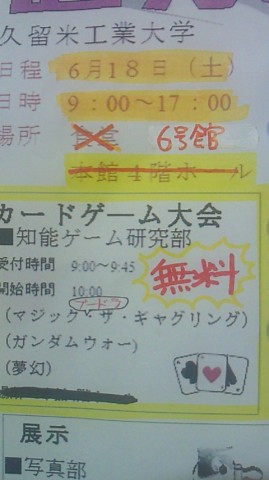 久留米工業大学
日程 6月18日（土）
日時 9：00～17：00
場所 食堂 6号館
本館4階ホール
カードゲーム大会
■知能ゲーム研究部
受付時間 9:00～9:45
無料
開始時間 10:00
ブードラ
（マジック・ザ・ギャグリング）
（ガンダムウォー）
（夢幻）
展示
■写真部